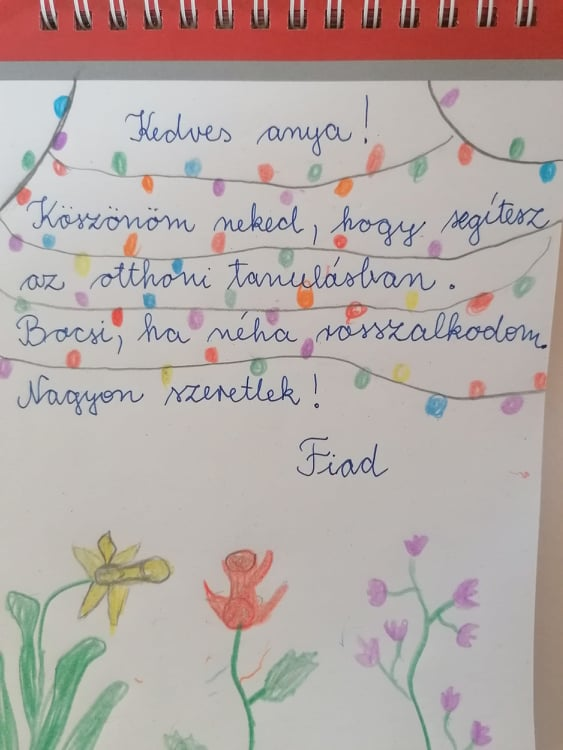 Kedves anya!
Köszönöm neked, hogy segítesz
az otthoni tanulásban.
Bocsi, ha néha rosszalkodom.
Nagyon szeretlek!
Fiad